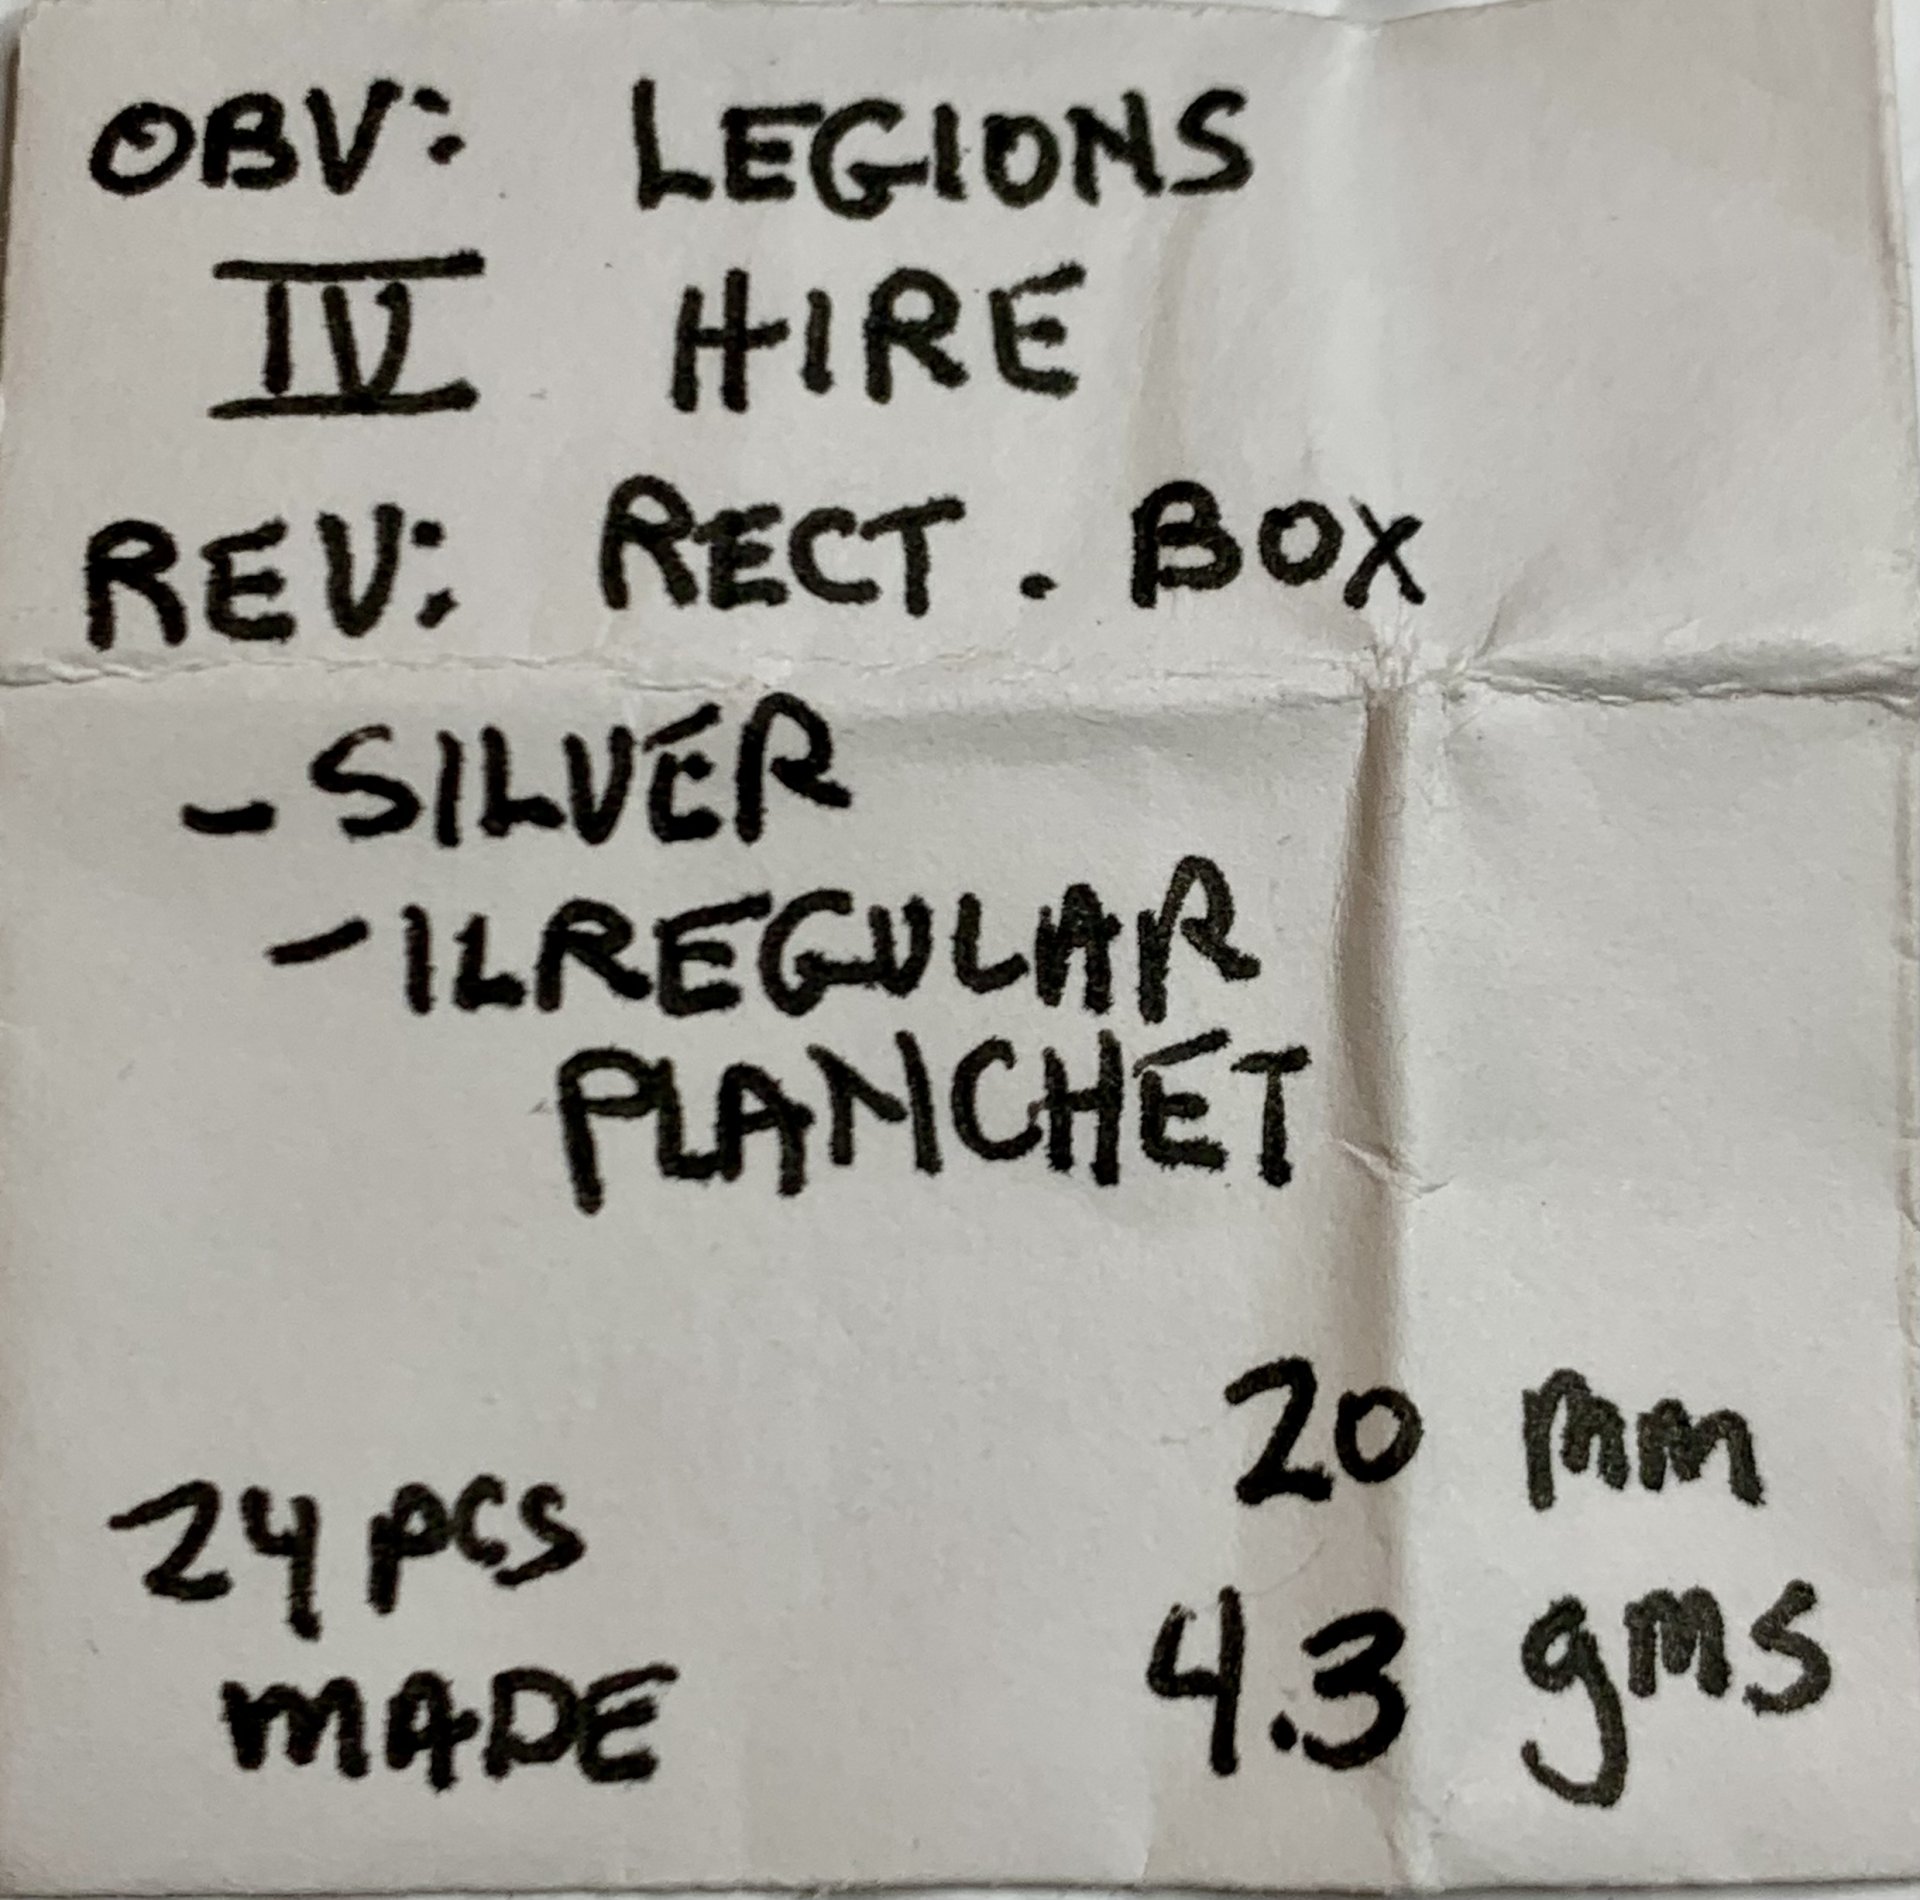 OBV: LEGIONS
IV HIRE
REV: RECT. BOX
- SILVER
- ILREGULAR
PLANCHET
20 mm
24 pcs
MADE
4.3 gms